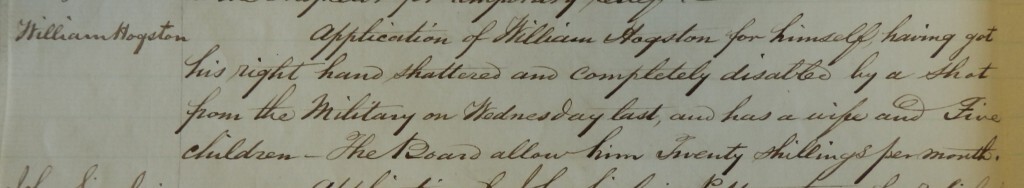 for temporary relief
William Hogston
Application of William Hogston for himself, having got
his right hand shattered and completely disabled by a shot
from the Military on Wednesday last, and has a wife and Five
children – The Board allow him Twenty shillings per month.
Application of John